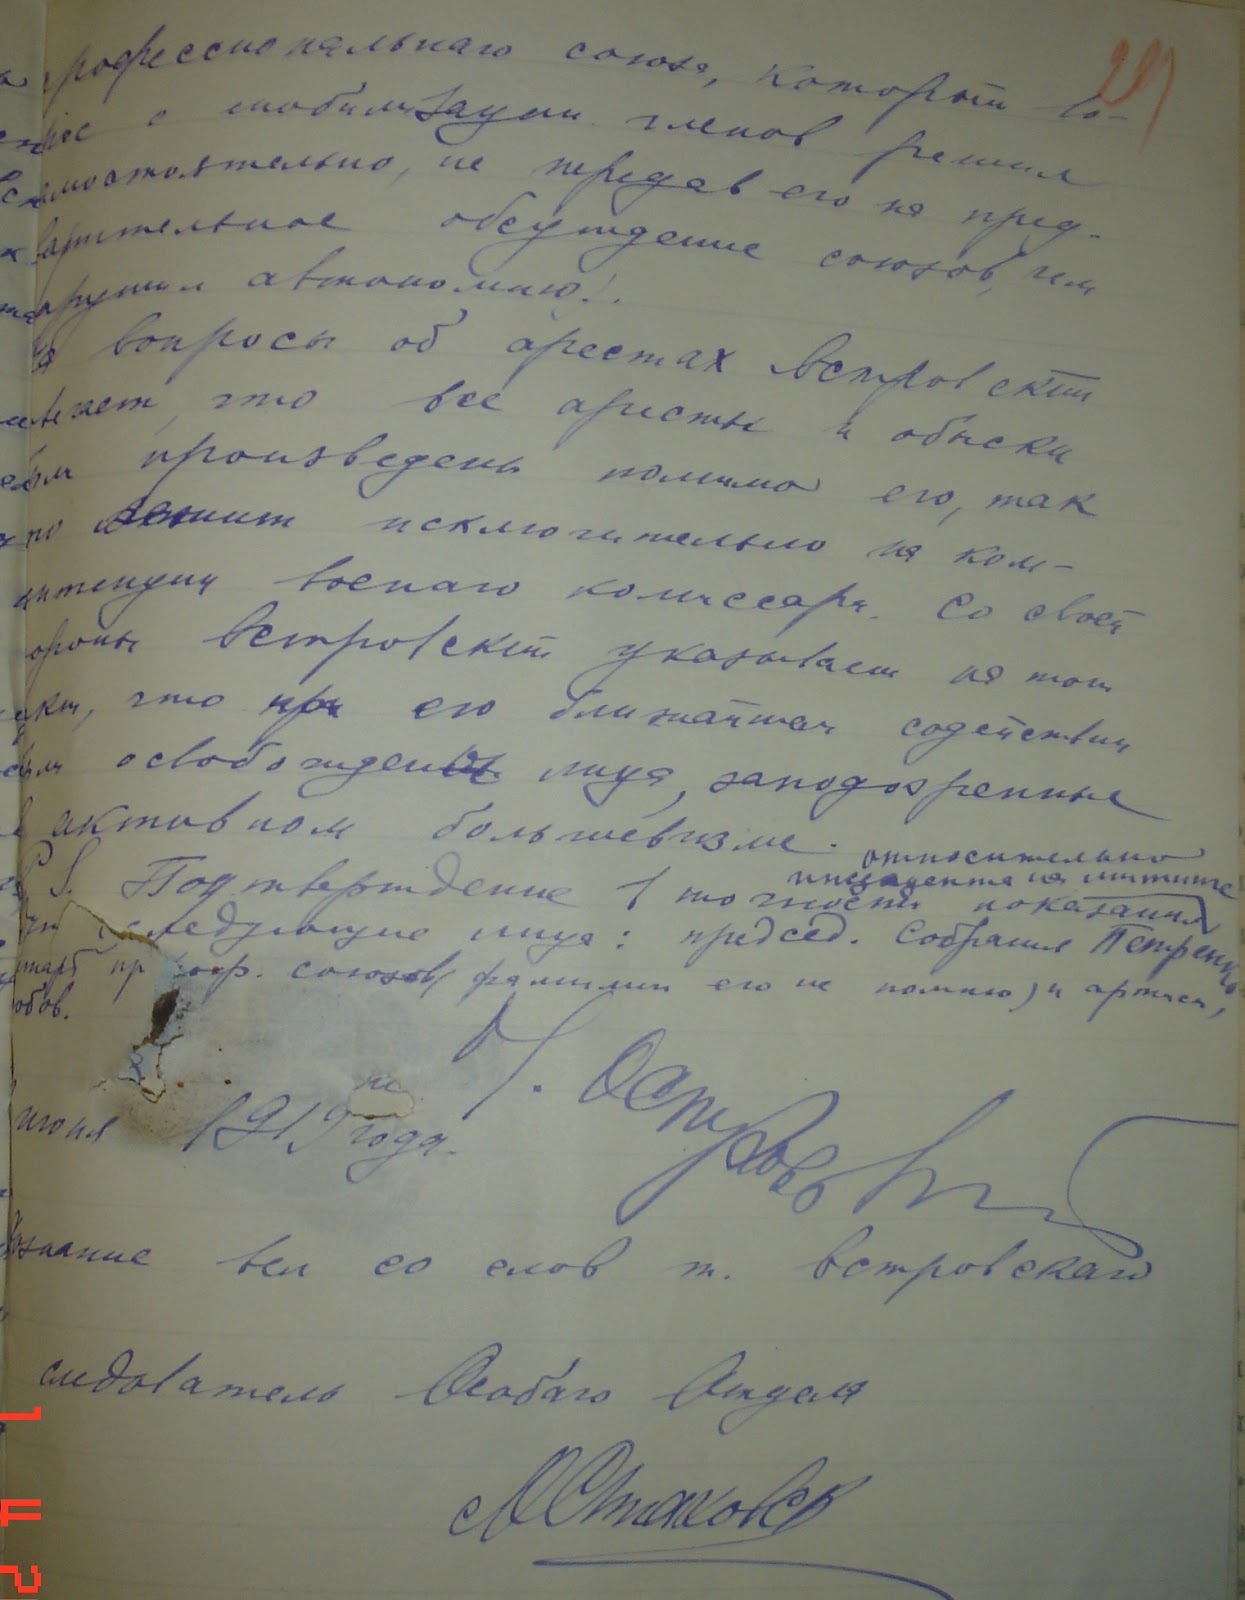 профессиональнаго союза, который во-
прос о мобилизации членов решил
самостоятельно, не передав его на пред-
варительное обсуждение союзов, чем
нарушил автономию).
На вопросы об арестах Островский
отвечает, что все аресты и обыски
были произведены помимо его, так
что лежит исключительно на ком-
петенции военаго комиссара. Со своей
стороны Островский указывает на тот
факт, что при его ближайшем содействии
были освобождены лица, заподозренные
в активном большевизме.
P.S. Подтверждение точности показания
относительно инцидента на митинге
следующие лица: председ. Собрания Петренко
проф. союзов (фамилии его не помню) и артист,
обов.
И. Островский
июня 1919 года.
вел со слов т. Островскаго
следователь Особаго Отдела
Стаховск